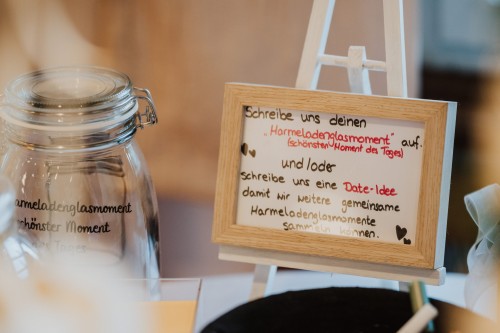 Schreibe uns deinen
"Marmeladenglasmoment" auf.
(schönsten Moment des Tages)
und/oder
schreibe uns eine Date-Idee
damit wir weitere gemeinsame
Marmeladenglasmomente
sammeln können.
armeladenglasmoment
chönster Moment